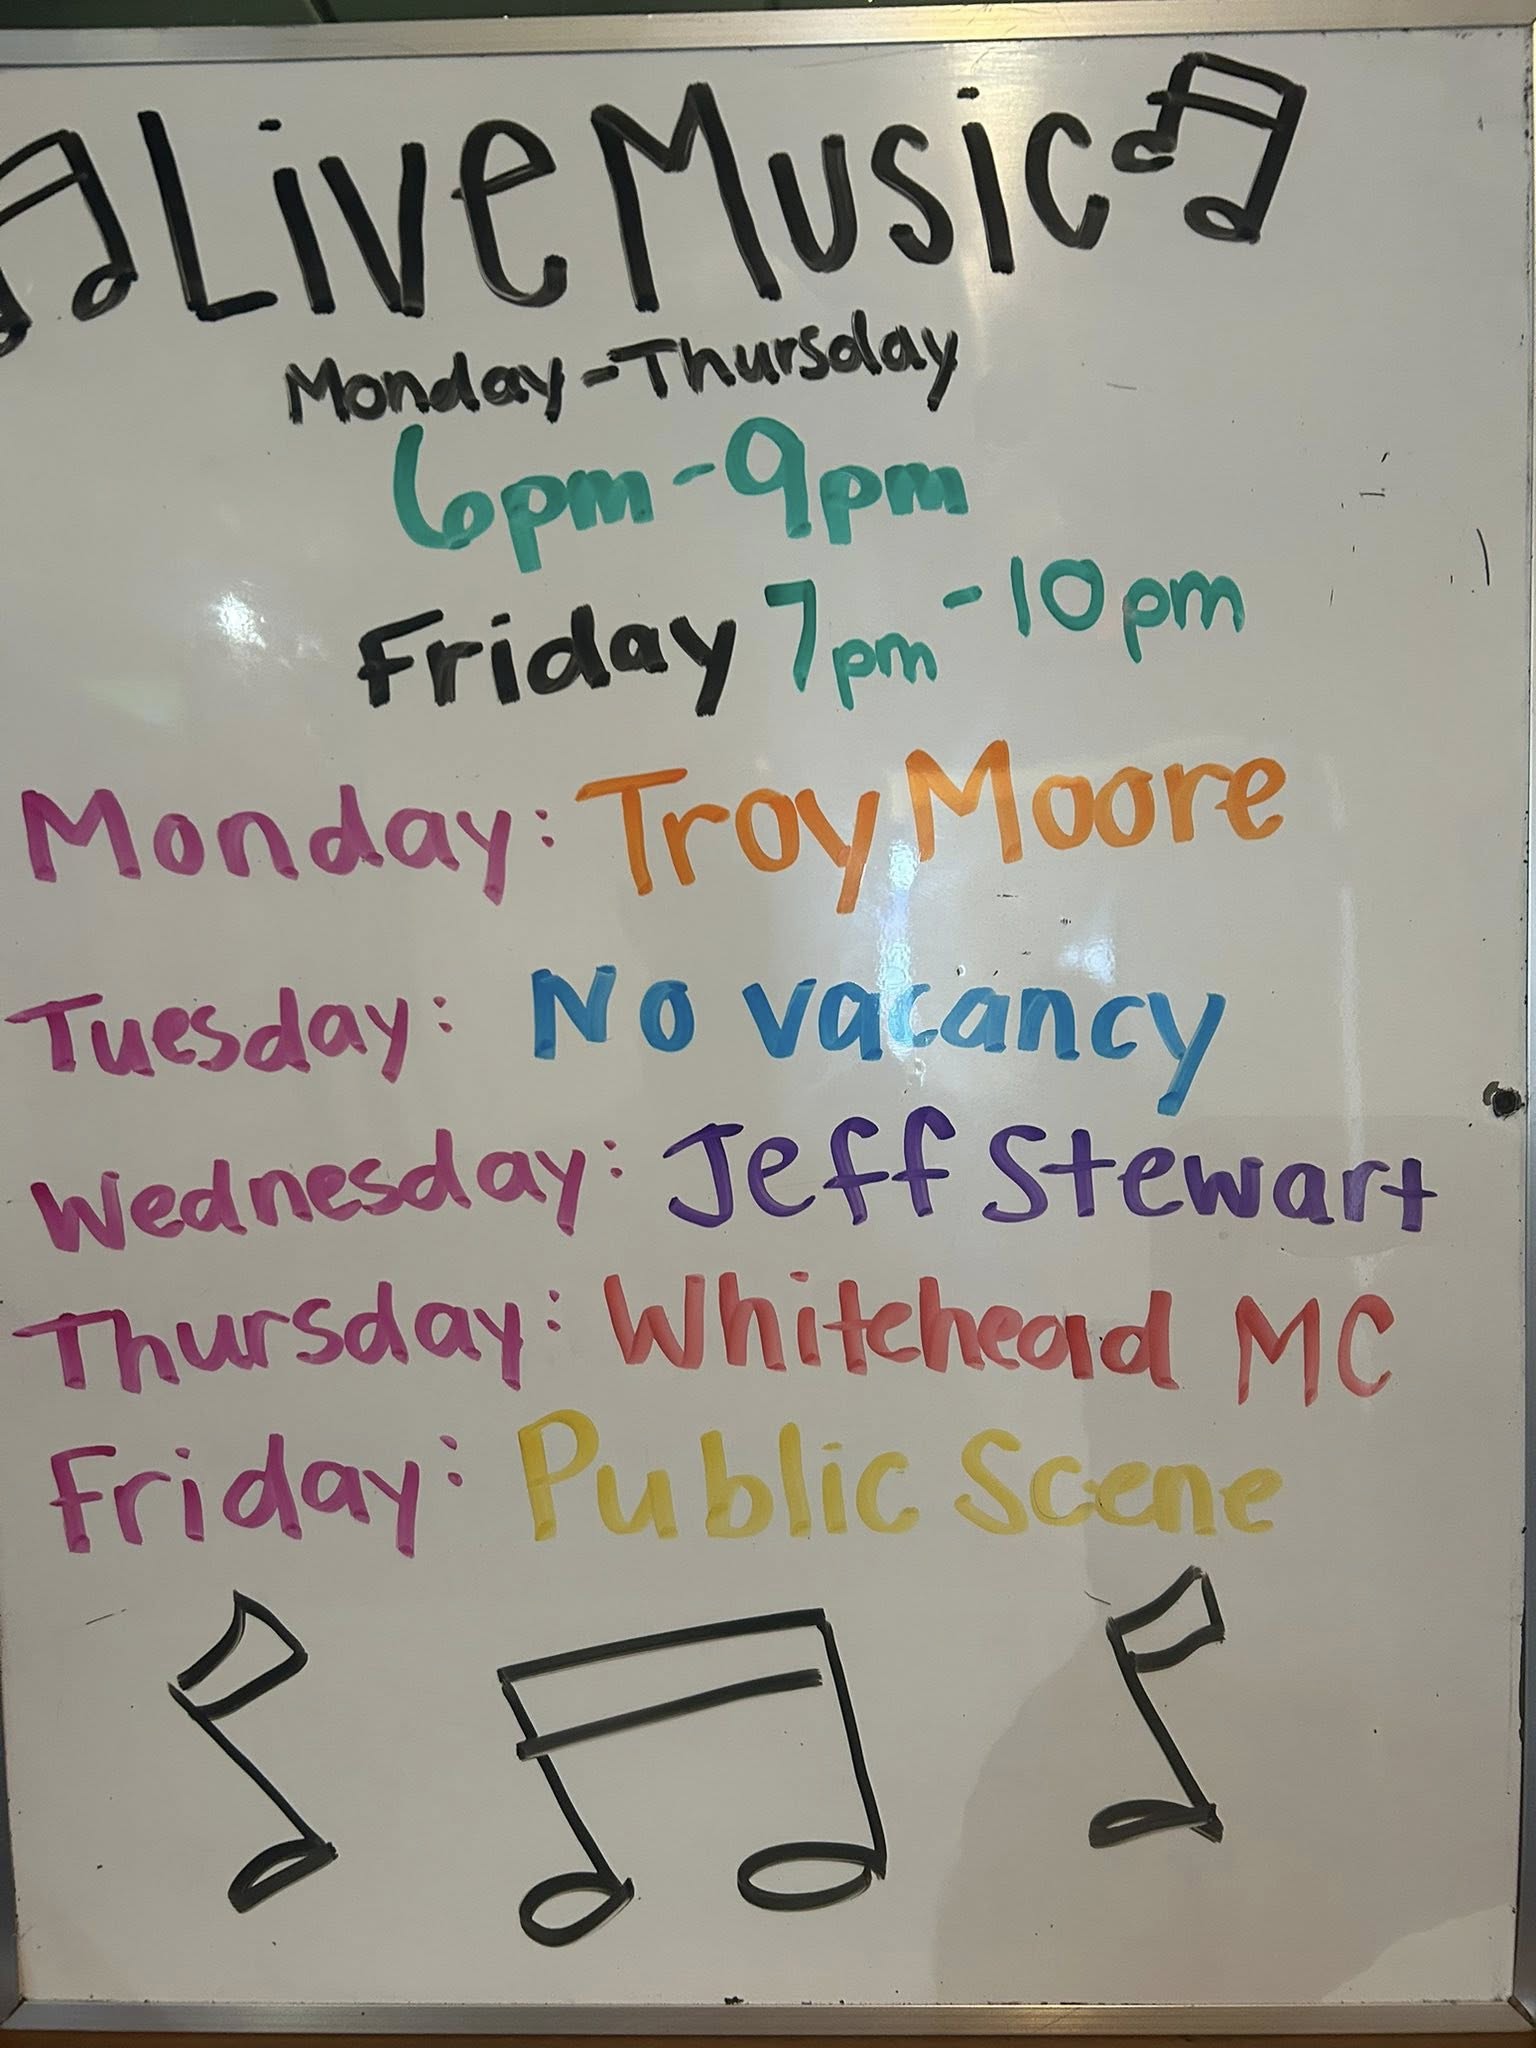 Live Music
Monday-Thursday
6pm-9pm
Friday 7pm-10pm
Monday: Troy Moore
Tuesday: No vacancy
Wednesday: Jeff Stewart
Thursday: Whitehead MC
Friday: Public Scene